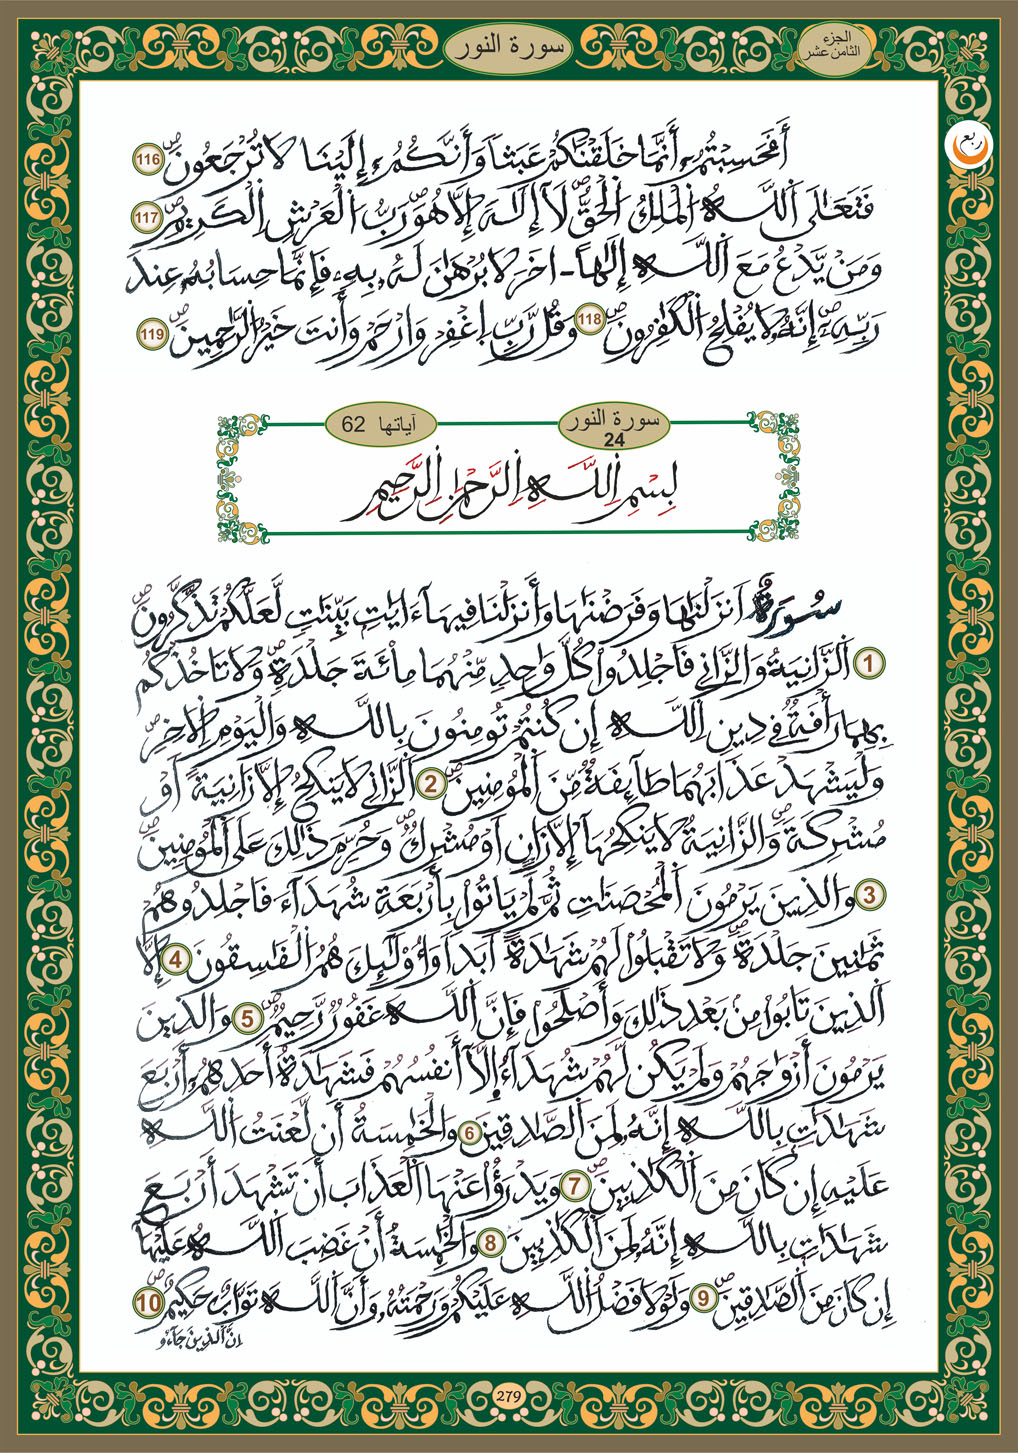 الجزء
الثامن عشر
سورة النور
ربع
أَفَحَسِبْتُمُۥ أَنَّمَا خَلَقْنَٰكُمْ عَبَثاً وَأَنَّكُمُۥ إِلَيْنَا لَا تُرْجَعُونَ صۖ 116
فَتَعَٰلَى اَللَّهُ اُلْمَلِكُ اُلْحَقُّ صۖ لَآ إِلَٰهَ إِلَّا هُوَ صۖ رَبُّ اُلْعَرْشِ اِلْكَرِيمِ صۖ 117
وَمَنْ يَّدْعُ مَعَ اَللَّهِ إِلَٰهاً - اخَرَ لَا بُرْهَٰنَ لَهُۥ بِهِۦ فَإِنَّمَا حِسَابُهُۥ عِندَ
رَبِّهِۦٓ صۖ إِنَّهُۥ لَا يُفْلِحُ اُلْكَٰفِرُونَ صۖ 118 وَقُل رَّبِّ اِغْفِرْ وَارْحَمْ وَأَنتَ خَيْرُ اُلرَّٰحِمِينَ صۖ 119
سورة النور
24
آياتها 62
بِسْمِ اِللَّهِ اِلرَّحْمَٰنِ اِلرَّحِيمِ
سُورَةٌ اَنزَلْنَٰهَا وَفَرَضْنَٰهَا وَأَنزَلْنَا فِيهَآ ءَايَٰتِۢ بَيِّنَٰتٖ لَّعَلَّكُمْ تَذَّكَّرُونَ صۖ
1 اَلزَّانِيَةُ وَالزَّانِي فَاجْلِدُوا كُلَّ وَٰحِدٖ مِّنْهُمَا مِاْئَةَ جَلْدَةٖ صۖ وَلَا تَاخُذْكُم
بِهِمَا رَأْفَةٌ فِي دِينِ اِللَّهِ إِن كُنتُمْ تُومِنُونَ بِاللَّهِ وَالْيَوْمِ اِلَاخِرِ صۖ
وَلْيَشْهَدْ عَذَابَهُمَا طَآئِفَةٌ مِّنَ اَلْمُومِنِينَ صۖ 2 اَلزَّانِي لَا يَنكِحُ إِلَّا زَانِيَةً اَوْ
مُشْرِكَةً صۖ وَالزَّانِيَةُ لَا يَنكِحُهَآ إِلَّا زَانٍ اَوْ مُشْرِكٌ صۖ وَحُرِّمَ ذَٰلِكَ عَلَى اَلْمُومِنِينَ صۖ
3 وَالذِينَ يَرْمُونَ اَلْمُحْصَنَٰتِ ثُمَّ لَمْ يَاتُوا بِأَرْبَعَةِ شُهَدَآءَ فَاجْلِدُوهُمْ
ثَمَٰنِينَ جَلْدَةً صۖ وَلَا تَقْبَلُوا لَهُمْ شَهَٰدَةً اَبَداً وَأُوْلَٰٓئِكَ هُمُ اُلْفَٰسِقُونَ 4 إِلَّا
اَلذِينَ تَابُوا مِنۢ بَعْدِ ذَٰلِكَ وَأَصْلَحُوا فَإِنَّ اَللَّهَ غَفُورٌ رَّحِيمٌ صۖ 5 وَالذِينَ
يَرْمُونَ أَزْوَٰجَهُمْ وَلَمْ يَكُن لَّهُمْ شُهَدَآءُ إِلَّآ أَنفُسُهُمْ فَشَهَٰدَةُ أَحَدِهِمُۥ أَرْبَعَ
شَهَٰدَٰتِۢ بِاللَّهِ إِنَّهُۥ لَمِنَ اَلصَّٰدِقِينَ 6 وَالْخَٰمِسَةُ أَن لَّعْنَتُ اُللَّهِ
عَلَيْهِ إِن كَانَ مِنَ اَلْكَٰذِبِينَ صۖ 7 وَيَدْرَؤُا عَنْهَا اَلْعَذَابَ أَن تَشْهَدَ أَرْبَعَ
شَهَٰدَٰتِۢ بِاللَّهِ إِنَّهُۥ لَمِنَ اَلْكَٰذِبِينَ 8 وَالْخَٰمِسَةُ أَنْ غَضِبَ اَللَّهُ عَلَيْهَآ
إِن كَانَ مِنَ اَلصَّٰدِقِينَ صۖ 9 وَلَوْلَا فَضْلُ اُللَّهِ عَلَيْكُمْ وَرَحْمَتُهُۥ وَأَنَّ اَللَّهَ تَوَّابٌ حَكِيمٌ صۖ 10
إِنَّ اَلذِينَ جَآءُو
279